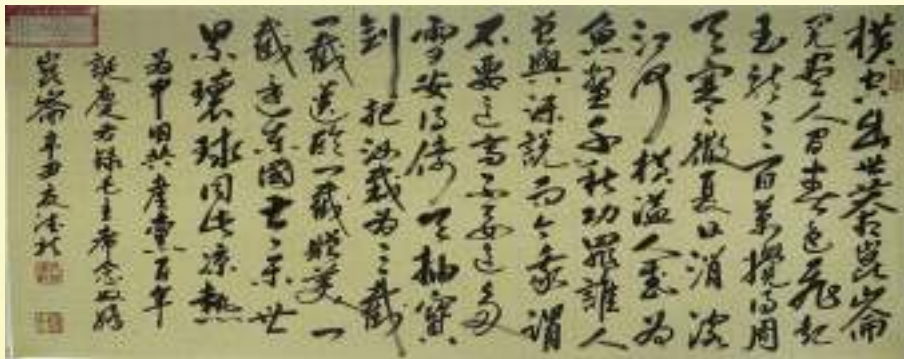 横空出世莽崑崙
阅尽人间春色飞起
玉龙三百万搅得周
天寒彻夏日消溶
江河横溢人或为
鱼鳖千秋功罪谁人
曾與评说而今我谓
不要这高不要这多
雪安得倚天抽宝
剑把汝裁为三截
一截遗欧一截赠美一
截还东国太平世
界环球同此凉热
为中国共产党百年
诞庆书录毛主席念奴娇
崑崙辛丑夏